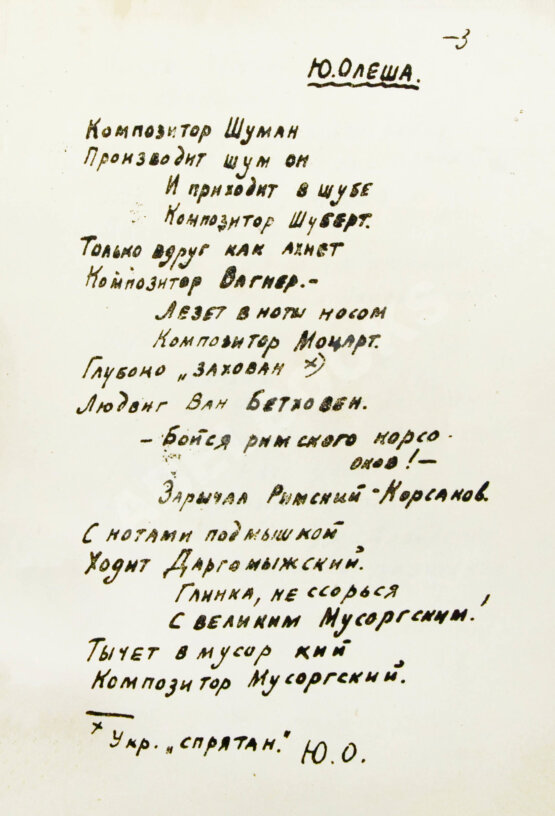 –3
Ю. ОЛЕША.
Композитор Шуман
Производит шум он
И приходит в шубе
Композитор Шуберт.
Только вдруг как ахнет
Композитор Вагнер.–
Лезет в ноты носом
Композитор Моцарт.
Глубоко „захован x)
Людвиг Ван Бетховен.
– Бойся римского корсо-
оков! –
Зарычал Римский-Корсаков.
С нотами подмышкой
Ходит Даргомыжский.
Глинка, не ссорься
С великим Мусоргским!
Тычет в мусор кий
Композитор Мусоргский.
x Укр. „спрятан."
Ю.О.